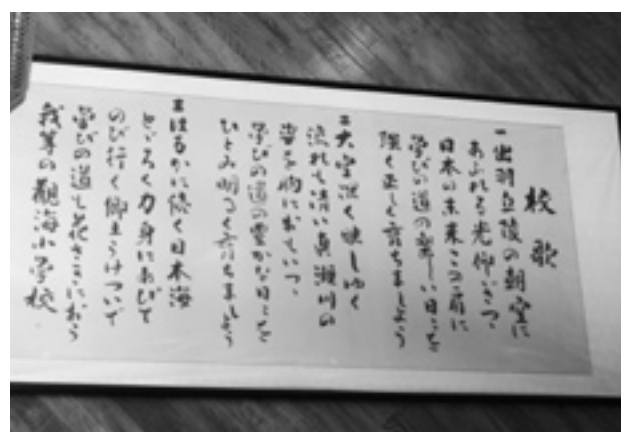 校歌
一 出羽丘陵の朝空に
あふれる光仰いつつ
日本の未来この肩に
学びの道の楽しい日々を
強く正しく育ちましょう
二 大空深く映しゆく
流れも清い真瀬川の
姿を内におもいつつ
学びの道の豊かな日々を
ひとみ明るく育ちましょう
三 はるかに続く日本海
とどろく力身にあびて
のび行く郷土うけついで
学びの道も花さきにおう
我等の観海小学校